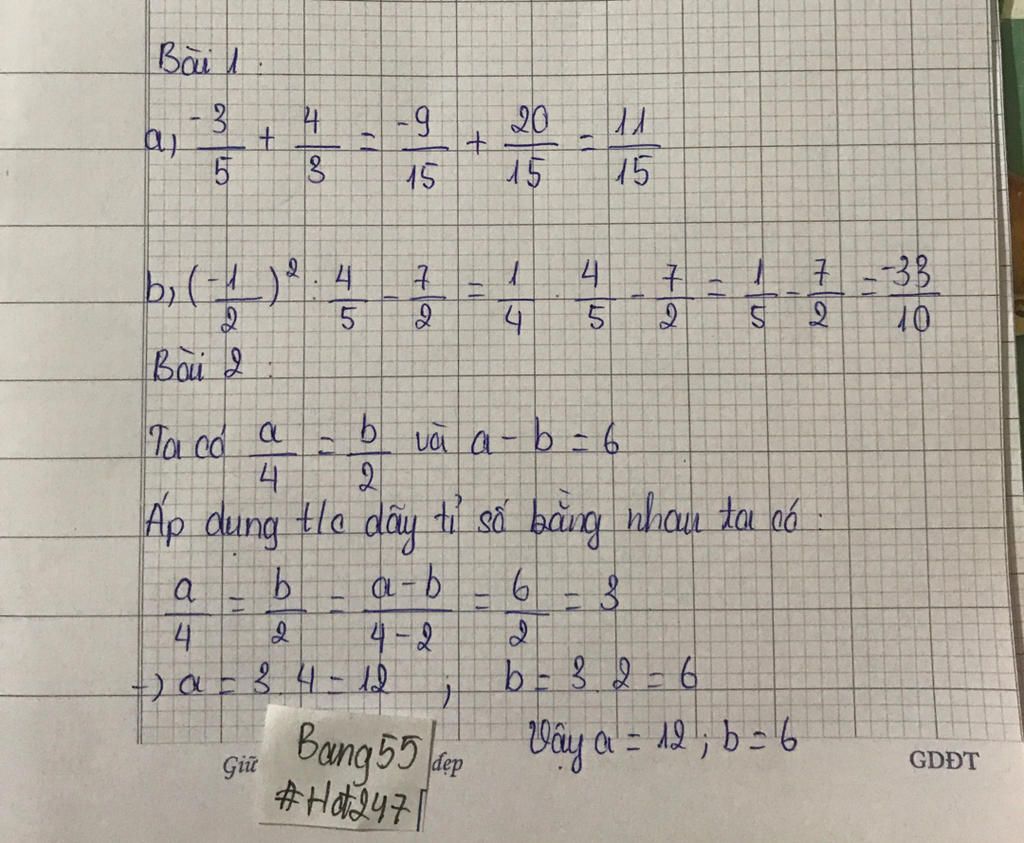 Bài 1:
a, -3/5 + 4/3 = -9/15 + 20/15 = 11/15
b, (-1/2)² : 4/5 - 7/2 = 1/4 . 4/5 - 7/2 = 1/5 - 7/2 = -33/10
Bài 2:
Ta có a/4 = b/2 và a - b = 6
Áp dụng t/c dãy tỉ số bằng nhau ta có:
a/4 = b/2 = a-b/4-2 = 6/2 = 3
→) a = 3.4 = 12 ; b = 3.2 = 6
Vậy a = 12; b = 6
Giữ
Bang55
#Hd247
đẹp
GDĐT